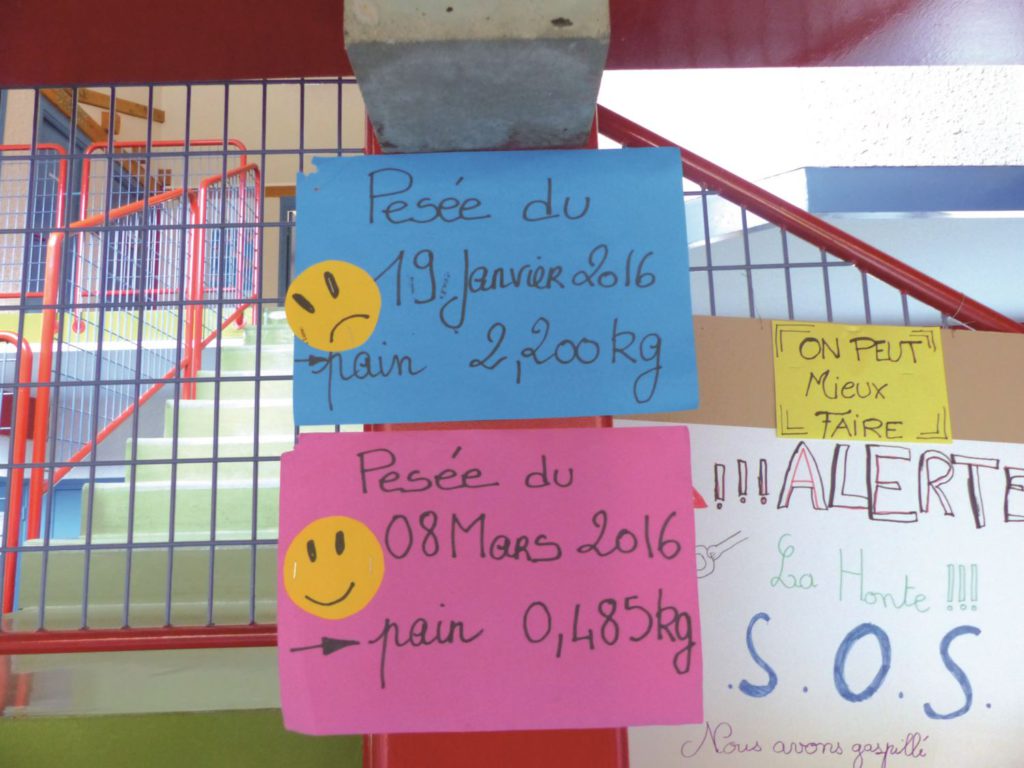 Pesée du
19 Janvier 2016
→ pain 2,200 kg
Pesée du
08 Mars 2016
→ pain 0,485 kg
ON PEUT
MIEUX
FAIRE
!!! ALERTE
La Honte !!!
.S.O.S.
Nous avons gaspillé